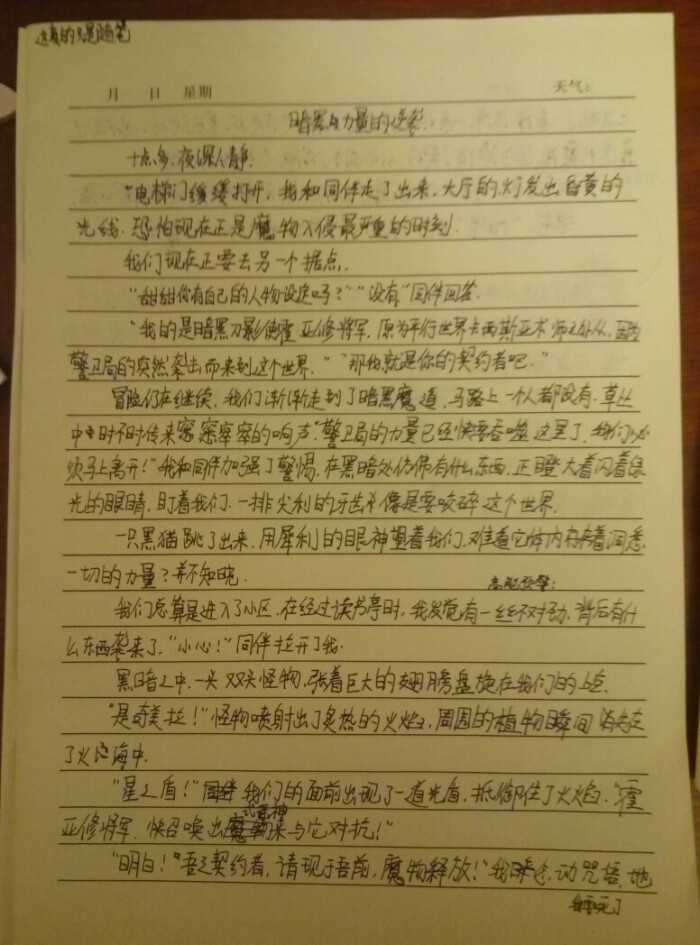 这真的只是随笔
月 日 星期 天气:
暗黑与力量的逆袭
十点多,夜深人静.
"电梯门缓缓打开,我和同伴走了出来,大厅的灯发出昏黄的
光线.恐怕现在正是魔物入侵最严重的时刻.
我们现在正要去另一个据点.
"甜甜你有自己的人物设定吗?""没有"同伴回答.
"我的是暗黑刀影使霍亚修将军,原为平行世界卡西斯亚术师之处从,因为
警卫局的突然袭击而来到这个世界.""那我就是你的契约者吧."
冒险仍在继续,我们渐渐走到了暗黑魔道,马路上一个人都没有.草丛
中时不时传来窸窸窣窣的响声."警卫局的力量已经快要吞噬这里了,我们必
须马上离开!"我和同伴加强了警惕,在黑暗处仿佛有什么东西,正瞪大着闪着绿
光的眼睛,盯着我们.一排尖利的牙齿像是要咬碎这个世界.
一只黑猫跳了出来,用犀利的眼神望着我们,难道它体内有着洞悉
一切的力量?并不知晓.
高能预警:
我们总算是进入了小区,在经过读书亭时,我发觉有一丝不对劲,背后有什
么东西袭来了."小心!"同伴拉开了我.
黑暗之中,一头双头怪物,张着巨大的翅膀盘旋在我们的上空.
"是奇美拉!"怪物喷射出了炙热的火焰,周围的植物瞬间消失在
了火海中.
"星之盾!"我们的面前出现了一道光盾,抵御住了火焰."霍
亚修将军,快召唤出式神来与它对抗!"
"明白!""吾之契约者,请现于吾前,魔物释放!"我动咒语,地
写完了